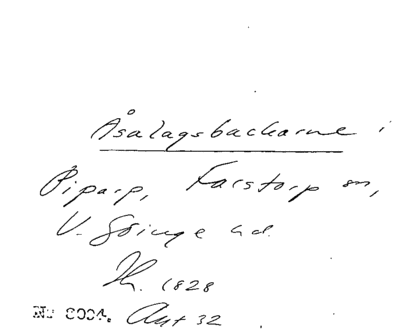 Åsalagsbackarne i
Piparp, Farstorp sn,
V. Göinge hd.
Th. 1828
No 8004. Ant 32